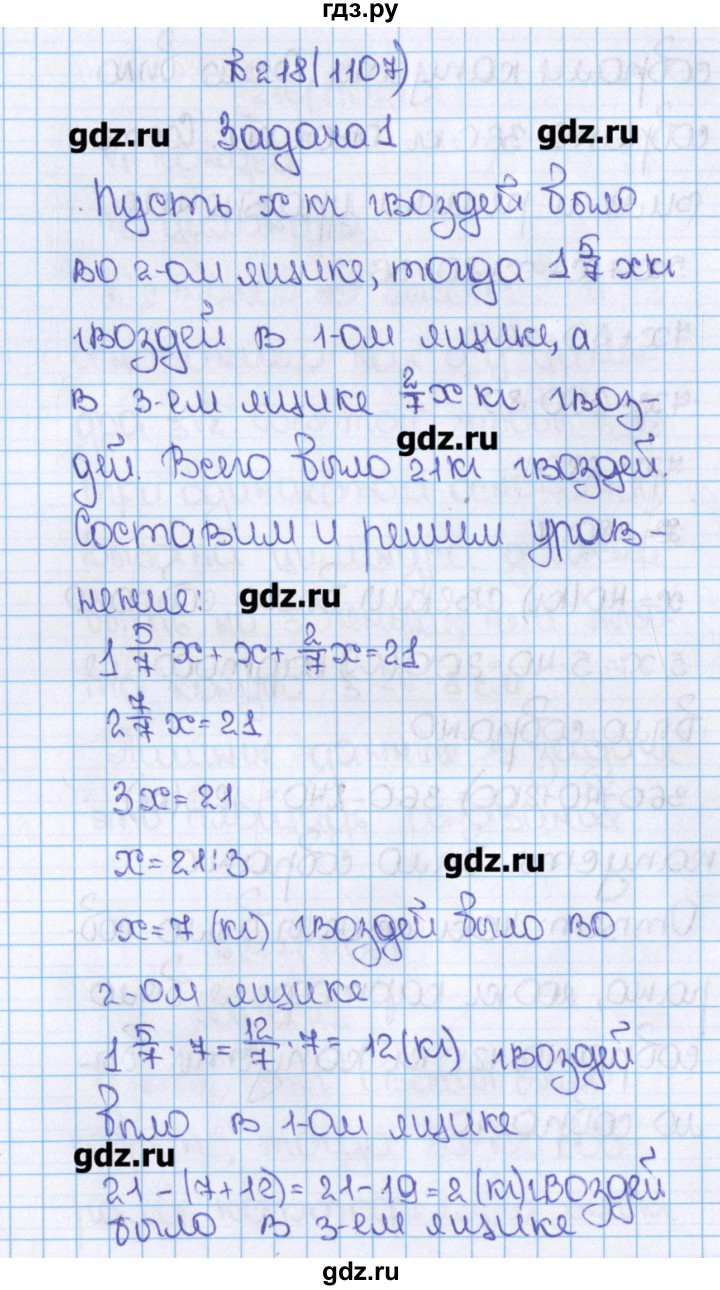 гдз.ру
№218(1107)
gdz.ru Задача 1 gdz.ru
Пусть x кг гвоздей было
во 2-ом ящике, тогда 1 5/7 x кг
гвоздей в 1-ом ящике, а
в 3-ем ящике 2/7 x кг гвоз-
gdz.ru
дей. Всего было 21 кг гвоздей.
Составим и решим урав-
нение: gdz.ru
1 5/7 x + x + 2/7 x = 21
2 7/7 x = 21
3x = 21
x = 21:3 gdz.ru
x = 7 (кг) гвоздей было во
2-ом ящике
1 5/7 · 7 = 12/7 · 7 = 12 (кг) гвоздей
было в 1-ом ящике
gdz.ru
21 - (7+12) = 21-19 = 2 (кг) гвоздей
было в 3-ем ящике
gdz.ru